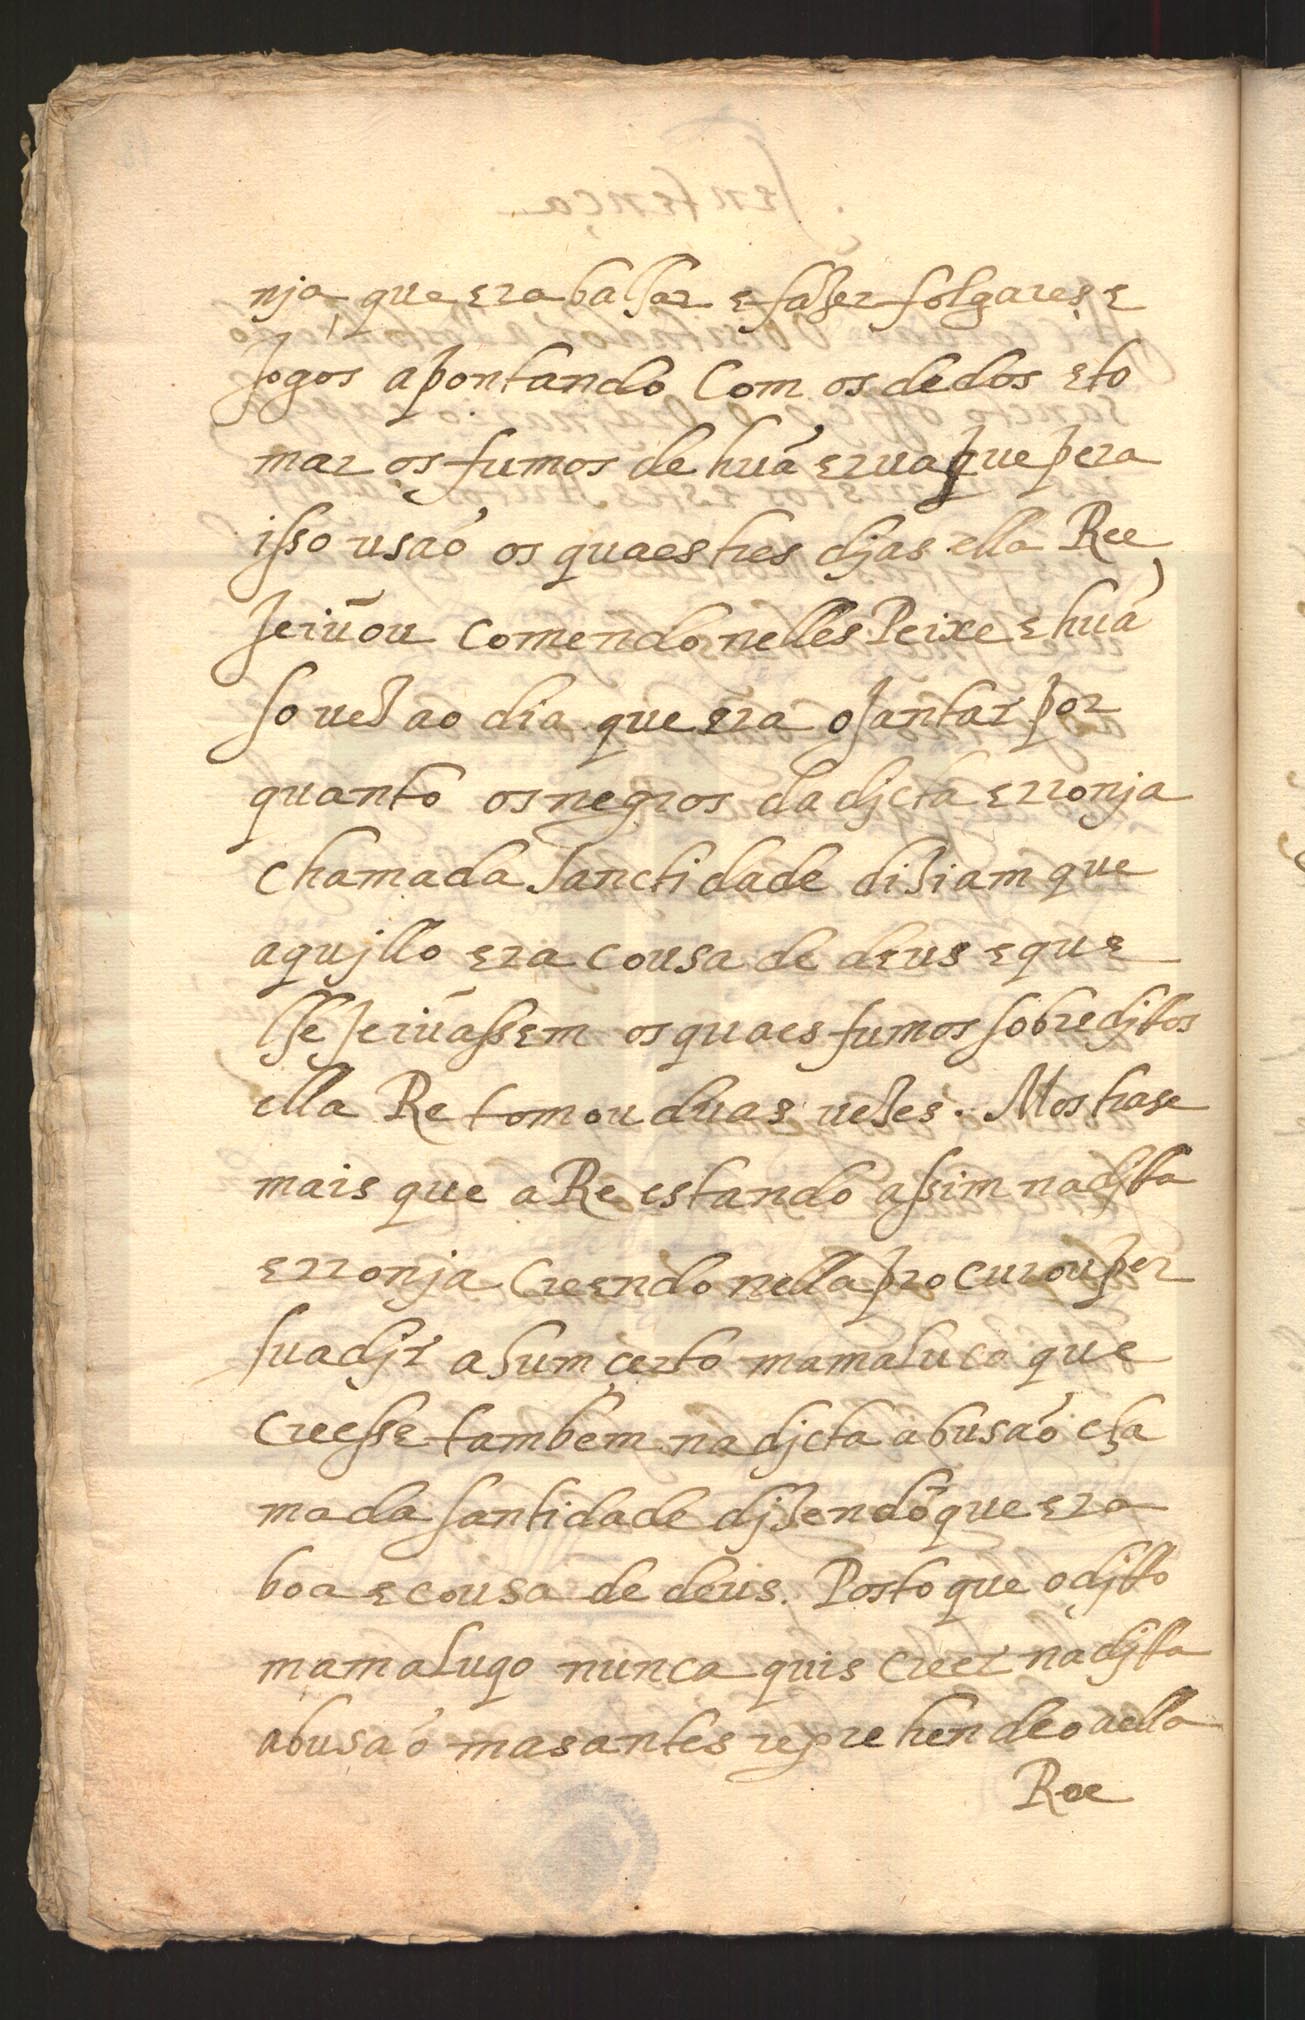 nja, que era bailar e fazer folgares, e
Jogos apontando Com os dedos e to
mar os fumos de huá erua que pera
isso usaó os quaes tres djas ella Ree,
Jeiũou comendo nelles Peixe e huá
so uez ao dia que era o Jantar por
quanto os negros da djcta erronja
chamada Sanctidade diziam que
aqujllo era cousa de deus e que
se Jeiũassem os quaes fumos sobreditos
ella Re tomou duas uezes. Mostrase
mais que a Re estando assim na djtta
erronja Creendo nella procurou per
suadjr a hum certo mamaluco que
creesse tambem na djcta abusaó cha
mada santidade djzendo que era
boa e cousa de deus. Posto que o djtto
mamaluqo nunca quis creer na djtta
abusaó mas antes reprehendeo a ella
Ree